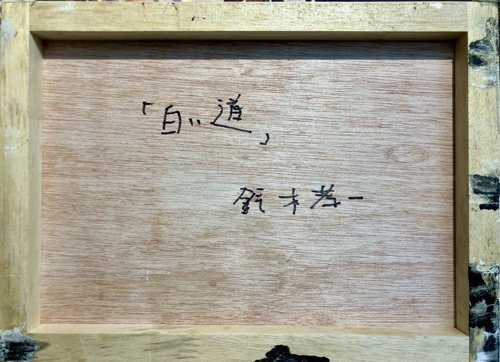 「白い道」
鈴木孝一